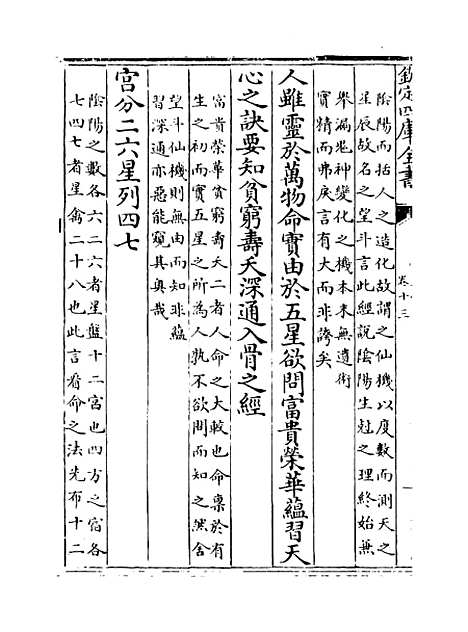 欽定四庫全書
卷十三
陰陽而括人之造化故謂之仙機以度數而測天之
星辰故名之望斗言此經說陰陽生尅之理終始無
舉漏鬼神變化之機本末無遺術
實精而弗戾言有大而非誇矣
人雖靈於萬物命實由於五星欲問富貴榮華蘊習天
心之訣要知貧窮壽夭深通入骨之經
富貴榮華貧窮壽夭二者人命之大較也命稟於有
生之初而實五星之所為人孰不欲問而知之然舍
望斗仙機則無由而知非蘊
習深通亦惡能窺其奥哉
宮分二六星列四七
陰陽之數各六二六者星盤十二宮也四方之宿各
七四七者星禽二十八也此言看命之法先布十二